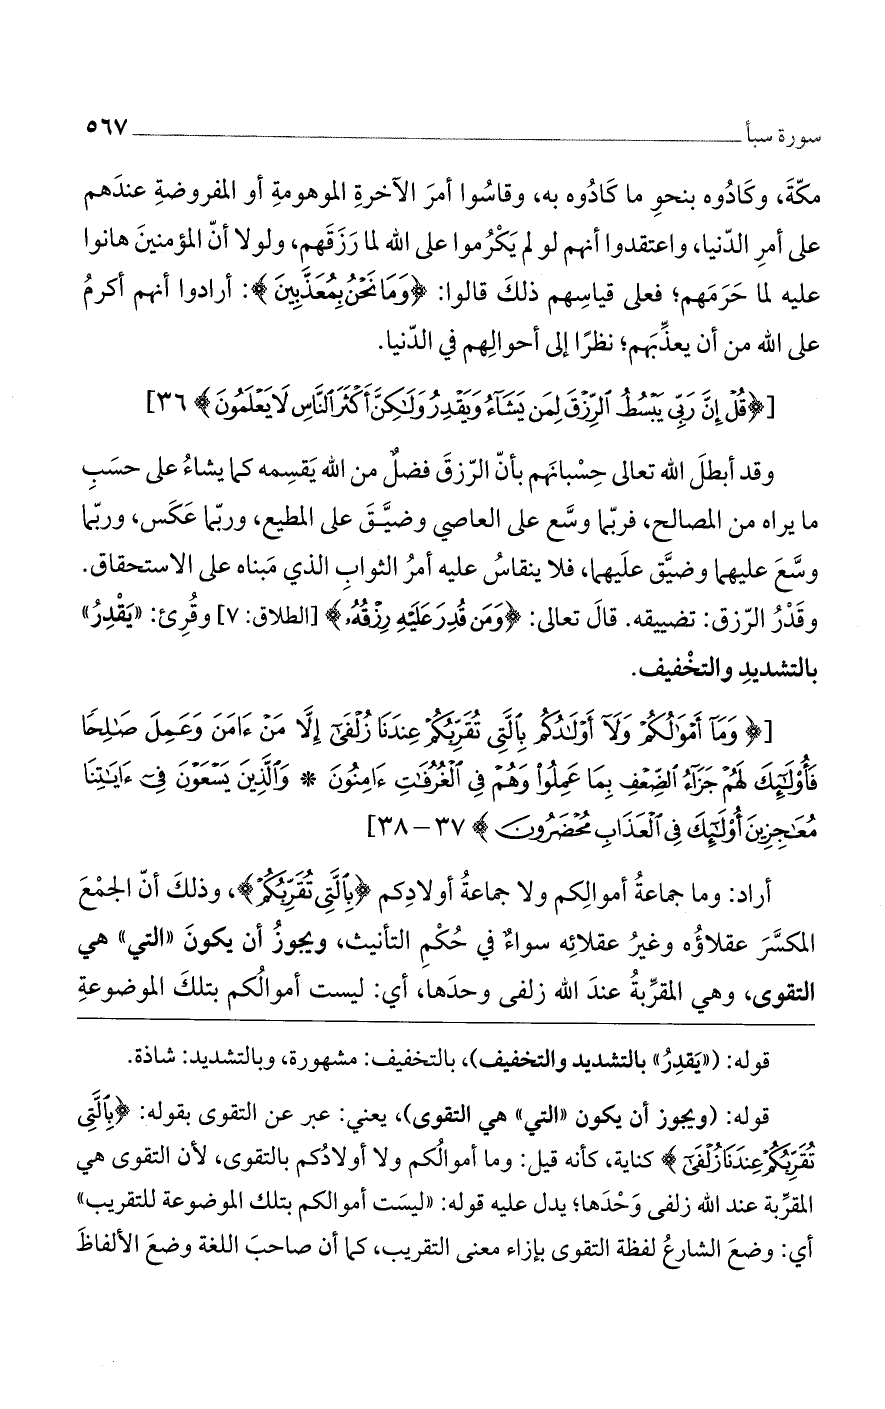 سورة سبأ ٥٦٧
مكّةَ، وكَادُوه بنحوِ ما كَادُوه به، وقاسُوا أمرَ الآخرةِ الموهومةِ أو المفروضةِ عندَهم
على أمرِ الدّنيا، واعتقدوا أنهم لو لم يَكْرُموا على الله لما رَزَقَهم، ولولا أنّ المؤمنينَ هانوا
عليه لما حَرَمَهم؛ فعلى قياسِهم ذلكَ قالوا: ﴿وَمَا نَحْنُ بِمُعَذَّبِينَ﴾: أرادوا أنهم أكرمُ
على الله من أن يعذِّبَهم؛ نظرًا إلى أحوالِهم في الدّنيا.
[﴿قُلْ إِنَّ رَبِّي يَبْسُطُ الرِّزْقَ لِمَن يَشَاءُ وَيَقْدِرُ وَلَٰكِنَّ أَكْثَرَ النَّاسِ لَا يَعْلَمُونَ﴾ ٣٦]
وقد أبطلَ الله تعالى حِسْبانَهم بأنّ الرّزقَ فضلٌ من الله يَقسِمه كما يشاءُ على حسَبِ
ما يراه من المصالح، فربّما وسَّع على العاصي وضيَّقَ على المطيع، وربّما عَكَس، وربّما
وسَّعَ عليهما وضيَّق علَيهما، فلا ينقاسُ عليه أمرُ الثوابِ الذي مَبناه على الاستحقاق.
وقَدْرُ الرّزق: تضييقه. قالَ تعالى: ﴿وَمَن قُدِرَ عَلَيْهِ رِزْقُهُ﴾ [الطلاق: ٧] وقُرِئ: «يَقْدِرُ»
بالتشديدِ والتخْفيف.
[﴿وَمَا أَمْوَالُكُمْ وَلَا أَوْلَادُكُم بِالَّتِي تُقَرِّبُكُمْ عِندَنَا زُلْفَىٰ إِلَّا مَنْ ءَامَنَ وَعَمِلَ صَالِحًا
فَأُولَٰئِكَ لَهُمْ جَزَاءُ الضِّعْفِ بِمَا عَمِلُوا وَهُمْ فِي الْغُرُفَاتِ ءَامِنُونَ * وَالَّذِينَ يَسْعَوْنَ فِي ءَايَاتِنَا
مُعَاجِزِينَ أُولَٰئِكَ فِي الْعَذَابِ مُحْضَرُونَ﴾ ٣٧-٣٨]
أراد: وما جماعةُ أموالِكم ولا جماعةُ أولادِكم ﴿بِالَّتِي تُقَرِّبُكُمْ﴾، وذلكَ أنّ الجمْعَ
المكسَّرَ عقلاؤُه وغيرُ عقلائِه سواءٌ في حُكْمِ التأنيث، ويجوزُ أن يكونَ «التي» هي
التقوى، وهي المقرِّبةُ عندَ الله زلفى وحدَها، أي: ليست أموالُكم بتلكَ الموضوعةِ
قوله: («يَقدِرُ» بالتشديد والتخفيف)، بالتخفيف: مشهورة، وبالتشديد: شاذة.
قوله: (ويجوز أن يكون «التي» هي التقوى)، يعني: عبر عن التقوى بقوله: ﴿بِالَّتِي
تُقَرِّبُكُمْ عِندَنَا زُلْفَىٰ﴾ كناية، كأنه قيل: وما أموالُكم ولا أولادُكم بالتقوى، لأن التقوى هي
المقرِّبة عند الله زلفى وَحْدَها؛ يدل عليه قوله: «ليسَت أموالكم بتلك الموضوعة للتقريب»
أي: وضعَ الشارعُ لفظة التقوى بإزاء معنى التقريب، كما أن صاحبَ اللغة وضعَ الألفاظَ